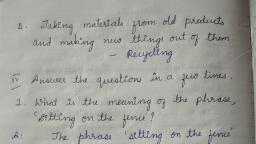 2. Taking materials from old products
and making new things out of them
- Recycling
IV Answer the question in a few lines.
1. What is the meaning of the phrase,
'sitting on the fence'?
A: The phrase 'sitting on the fence'